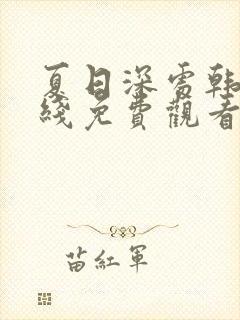 夏日深雪韩
綫免費觀看
苗紅軍